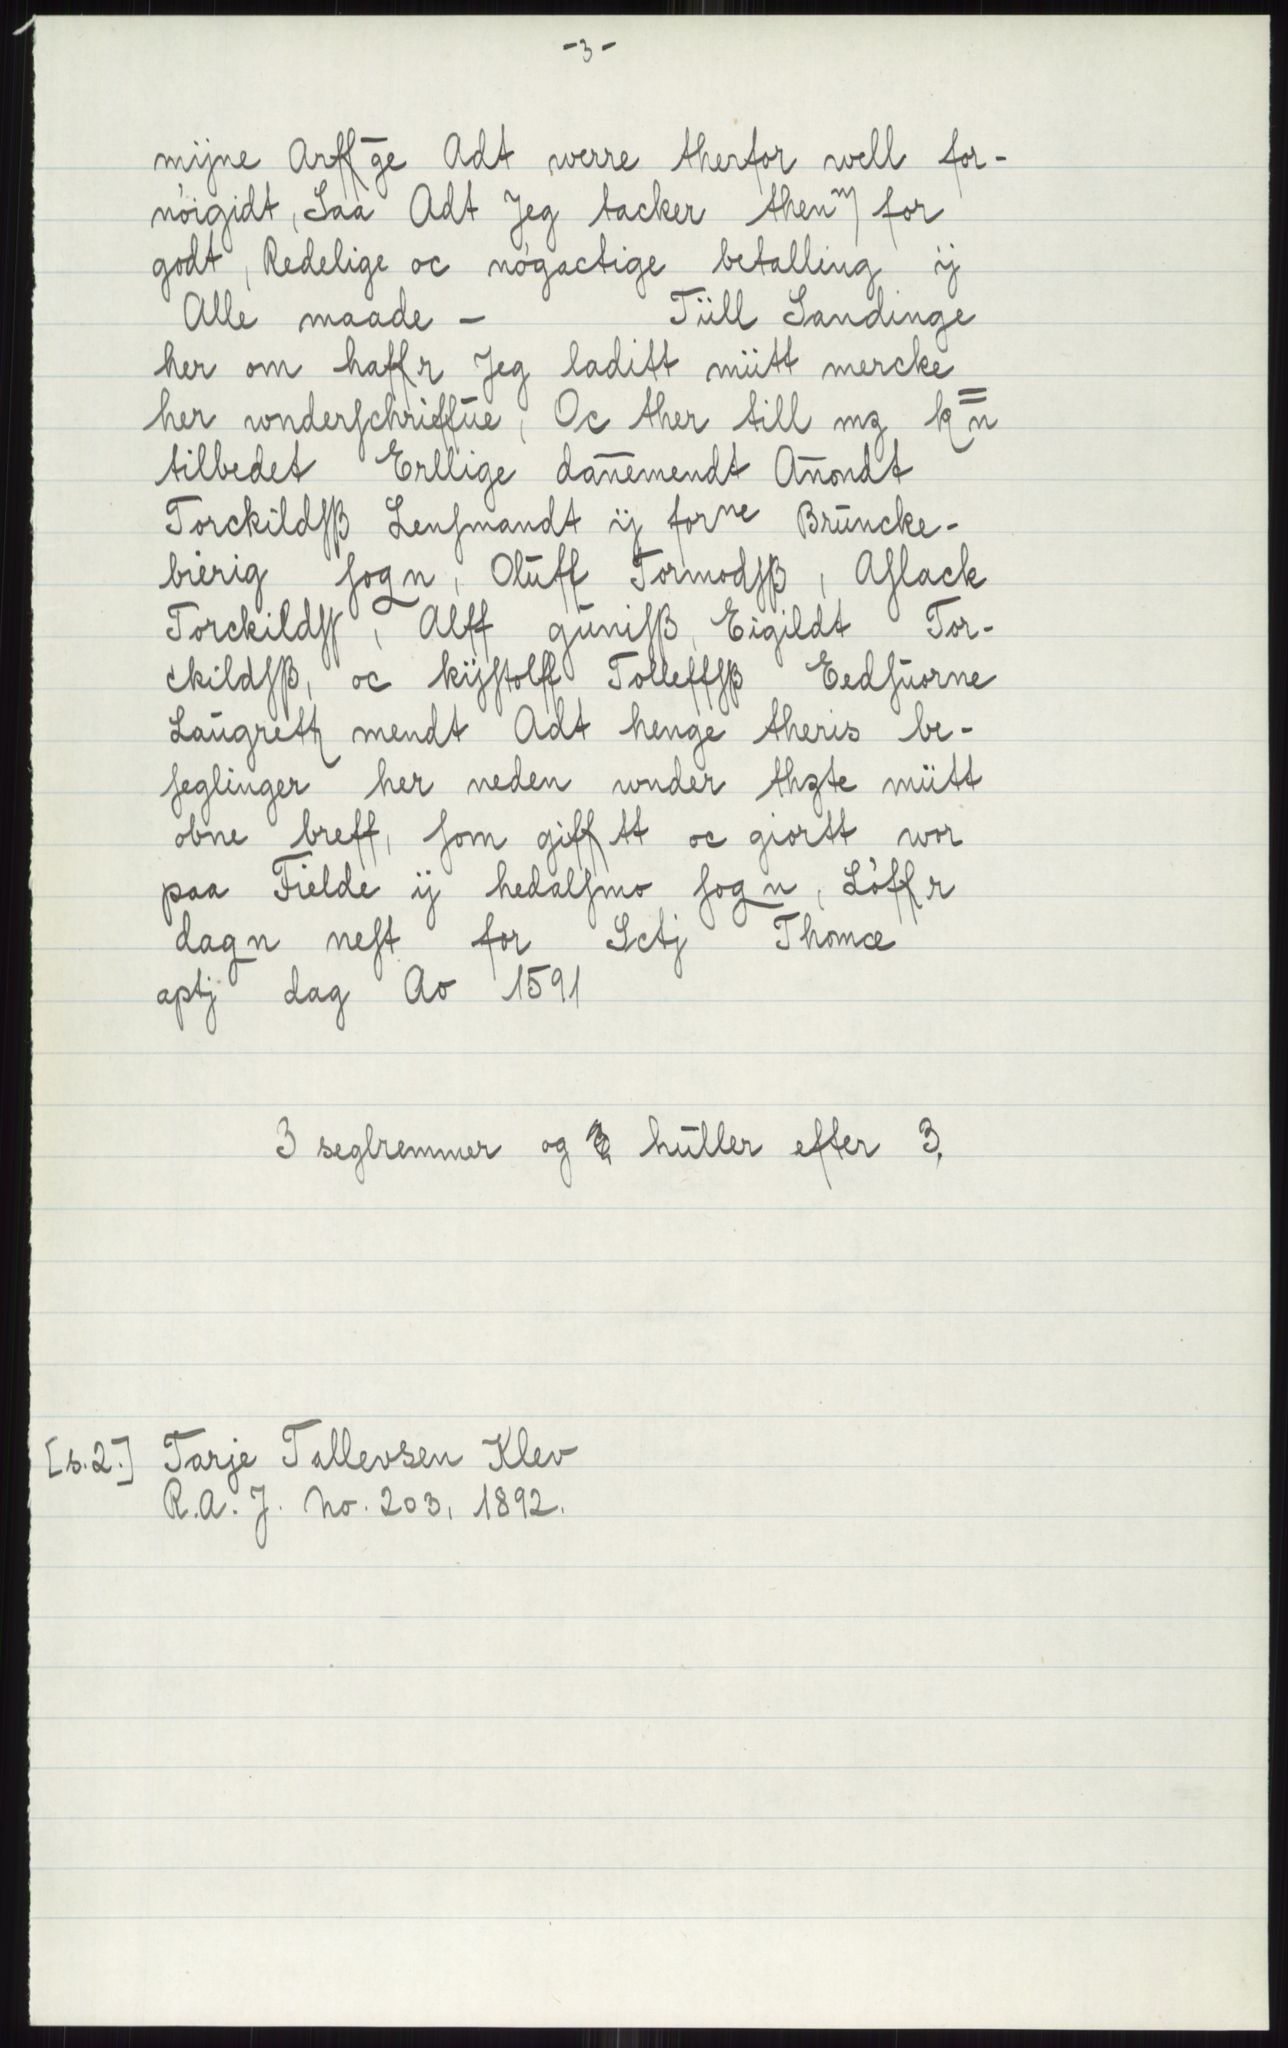 -3-
mijne Arff̄ge Adt werre therfor well for-
nóigidt, Saa Adt Jeg tacker thenm for
godt, Redelige oc nógactige betalling ij
Alle maade - Tüll Sandinge
her om haffr Jeg laditt mütt mercke
her wnderſchriffūe, Oc ther till mz k=n
tilbedet Erllige dan̄emendt An̄ondt
Torckildſβ Lenſmandt ij forne Brūncke-
biėrig ſogn, Olūff Tormodſβ, Aſlack
Torckildſſ, Alff gūniſβ, Eigildt Tor-
ckildſβ, oc kijſtolff Tolleffſβ Eedſūorne
Laūgrettz mendt Adt henge theris be-
ſeglinger her neden wnder thzte mütt
obne breff, ſom giff tt oc giortt wor
paa Fielde ij hedalſmo ſogn, Lóffr
dagn neſt for Sctj Thomæ
aptj dag Ao 1591
3 seglremmer og hūller efter 3.
[s.2.] Tarje Tallevsen Klev
R.A. J. No. 203, 1892.